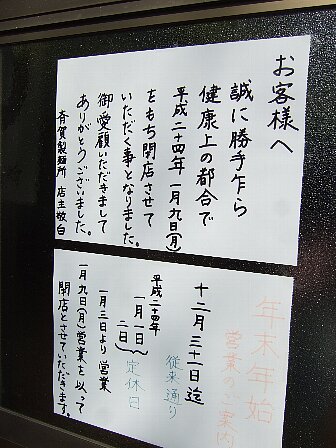 お客様へ
誠に勝手乍ら
健康上の都合で
平成二十四年一月九日(月)
をもち閉店させて
いただく事となりました。
御愛顧いただきまして
ありがとうございました。
有賀製麺所 店主敬白
年末年始
営業のご案内
十二月三十一日迄
従来通り
平成二十四年
一月一日
二日
定休日
一月三日より営業
一月九日(月)営業を以って
閉店とさせていただきます。